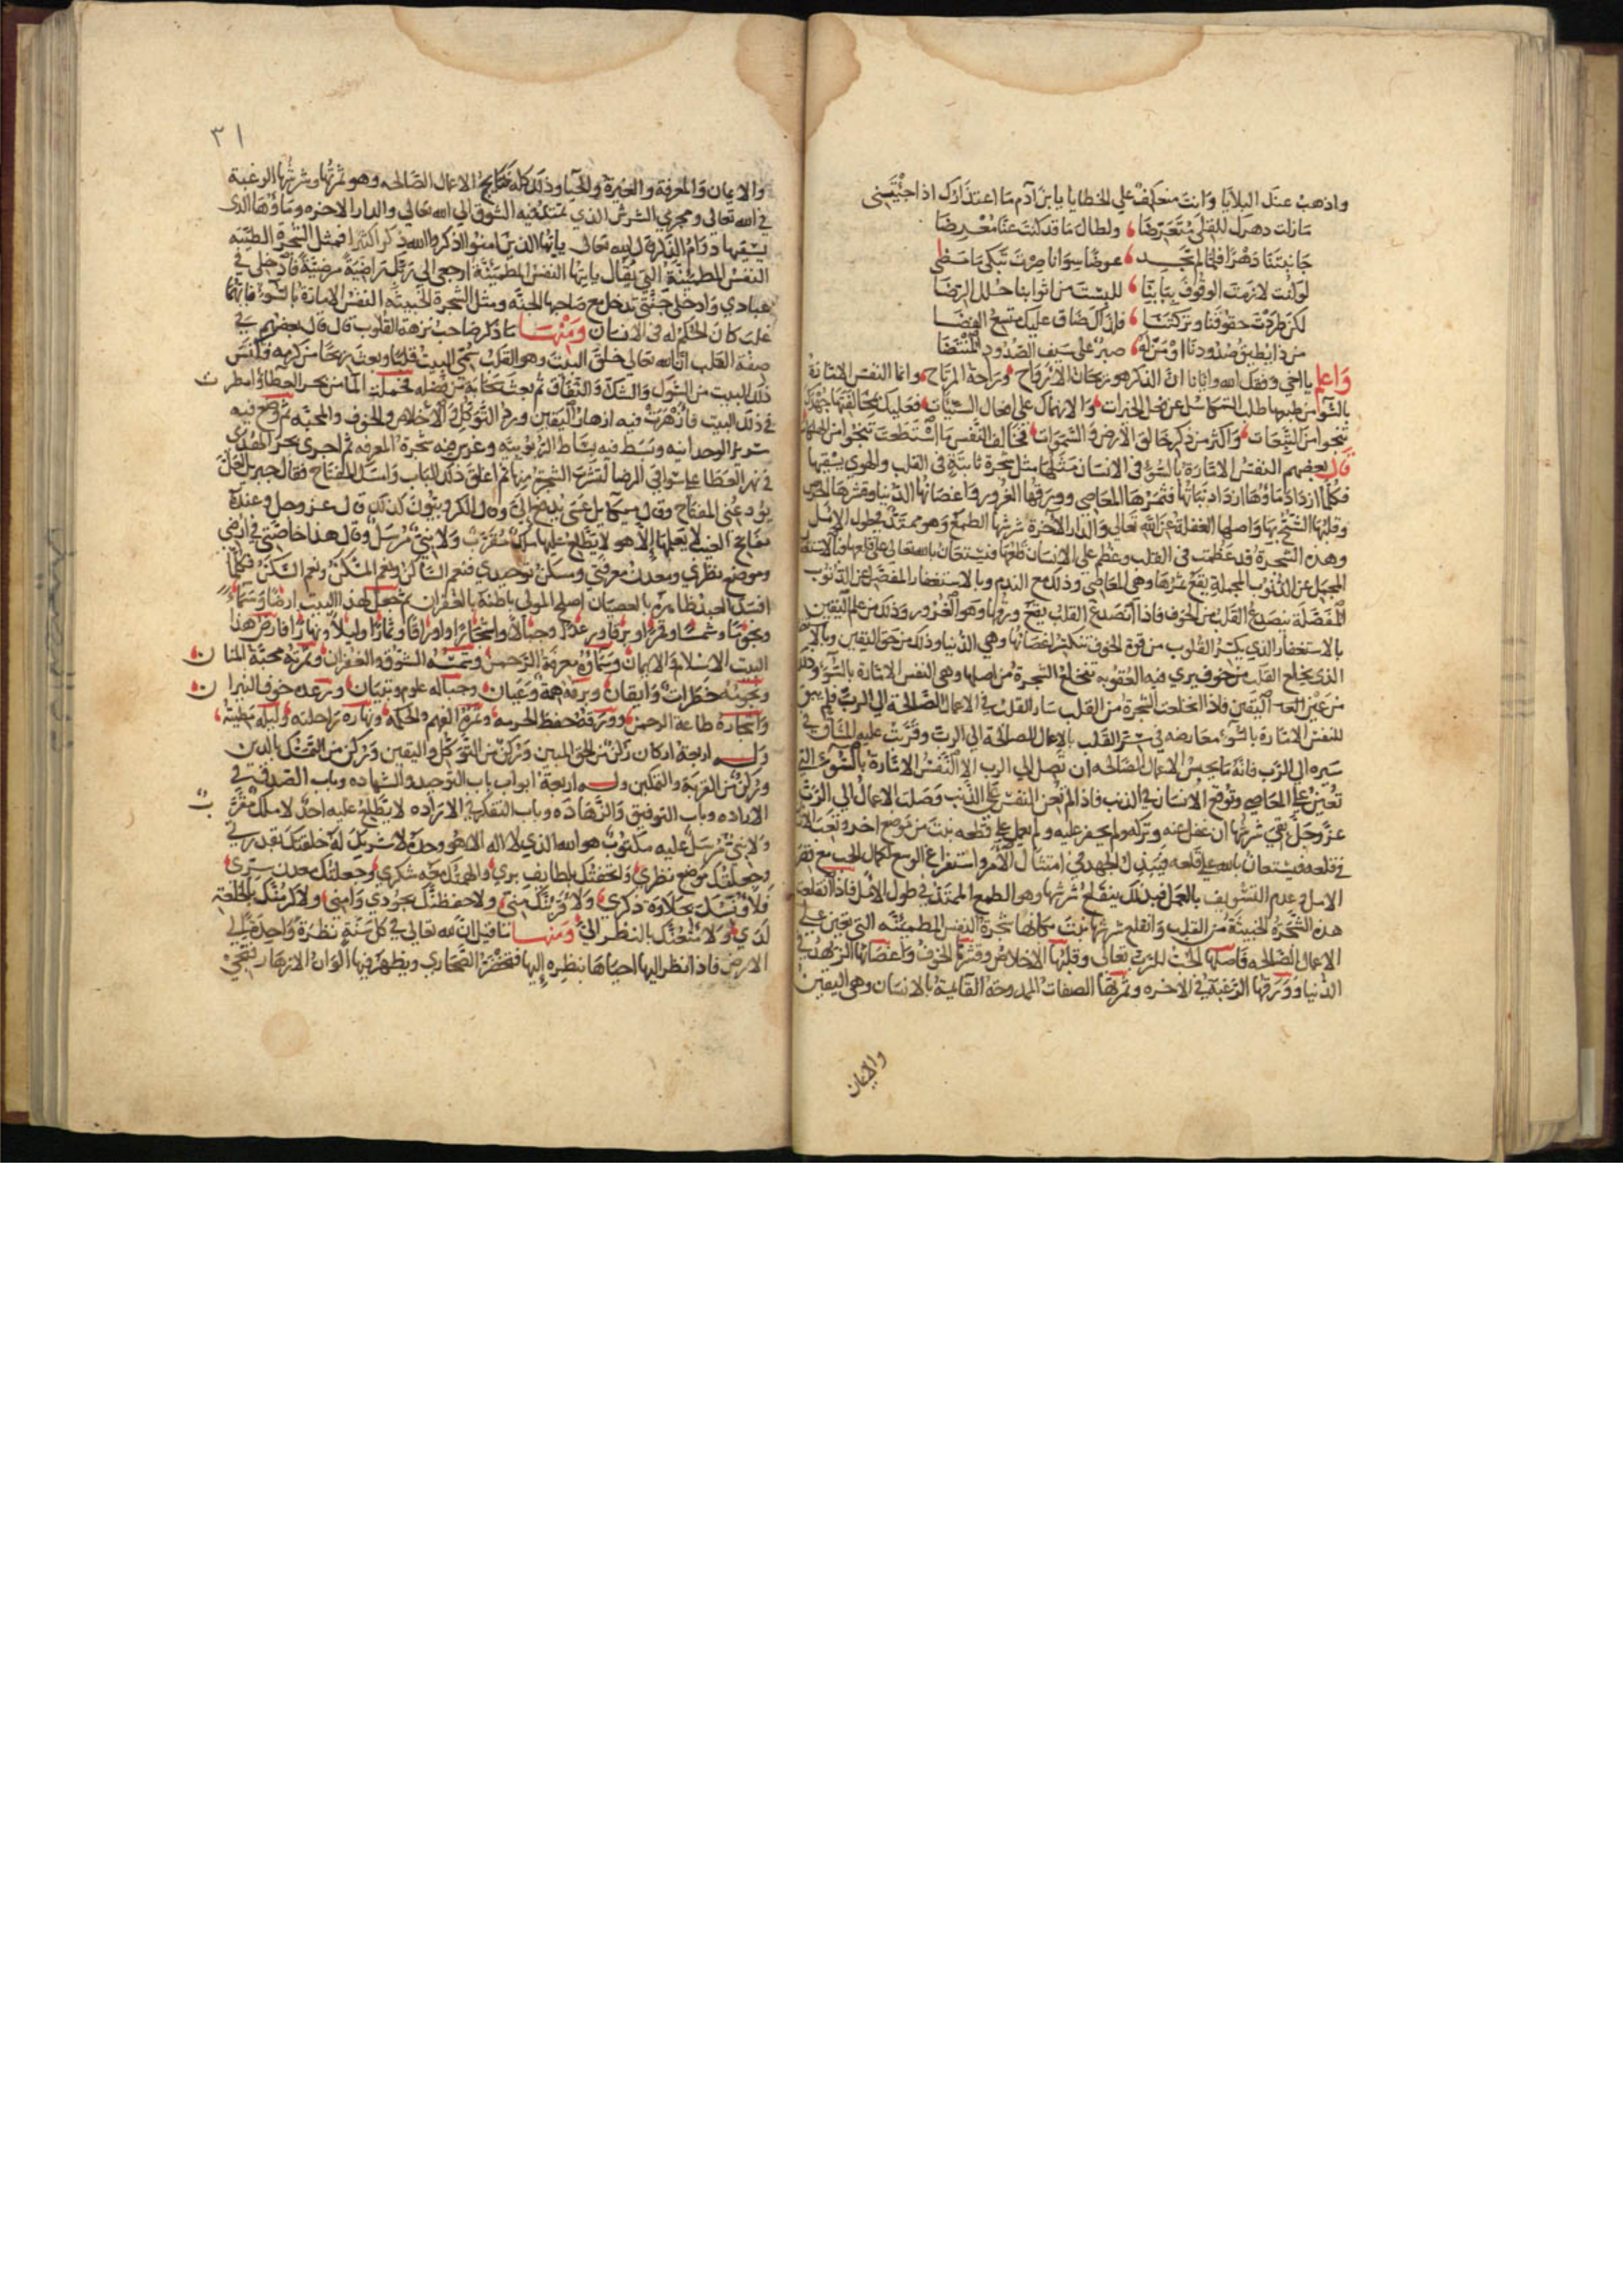 واذهب عنك البلايا وانت منعكف علي الخطايا يا بن آدم ما اعتذارك اذا جئتني
مازلت دهرك للقلى متعرضا ولطال ما قد كنت عنا معرضا
جانبتنا دهرا فلما لم تجد عوضا سوانا صرت تبكي ما مضى
لو كنت لازمت الوقوف ببابنا للبست من اثوابنا حلل الرضا
لكن طردت حقوقنا وتركتنا فلذلك ضاق عليك متسع الفضا
من ذا يطيق صدودنا او من له صبر على سيف الصدود المنتضا
واعلم يا اخي وفقك الله وايانا ان الذكر هو ريحان الارواح وراحة المرتاح واما النفس الامارة
بالسوء من طبعها طلب التكاسل عن فعل الخيرات والانهماك علي افعال السيآت فعليك بمخالفتها جهدك
تنجوا من التبعات واكثر من ذكر خالق الارض والسموات فخالف النفس ما استطعت تنجوا من
قال بعضهم النفس الامارة بالسوء في الانسان مثلها مثل شجرة ثابتة في القلب والهوي يسقيها
فكلما ازداد ماؤها ازداد نباتها فثمرها المعاصي وورقها الغرور واغصانها الدنيا وقشرها الحرص
وقلبها الشح بها واصلها الغفلة عن الله تعالي والدار الآخرة شرشها الطمع وهو ممتد بطول الامل
وهذه الشجرة قد عظمت في القلب وعظم علي الانسان قلعها فيستعان بالله تعالى على قلعها
المجمل عن الذنوب المجملة يقع ثمرها وهي المعاصي وذلك مع الندم وبالاستغفار المفصل عن الذنوب
المفصلة ينصدع القلب من الخوف فاذا انصدع القلب يقع ورقها وهو الغرور وذلك من علم اليقين
بالاستغفار الذي يكسر القلوب من قوة الخوف تنكسر اغصانها وهي الدنيا وذلك من حق اليقين
الذي يخلع القلب من خوف يري فيه العقوبه تنخلع الشجرة من اصلها وهي النفس الامارة بالسوء وذلك
من عين اليقين فاذا انخلعت الشجرة من القلب سار القلب في الاعمال الصالحة الي الرب فلم يبق
للنفس الامارة بالسوء معارضه في سير القلب بالاعمال الصالحة الي الرب
سيره الي الرب فانه ما يحبس الاعمال الصالحه ان تصل الي الرب الا النفس الامارة بالسوء التي
تعين علي المعاصي وتوقع الانسان في الذنب فاذا لم تعن النفس علي الذنب وصلت الاعمال الي الرب
عز وجل بقي شرشها ان غفل عنه وتركه ولم يحفر عليه ولم يعمل علي قطعه نبت من موضع اخر
في قلعه فيستعان بالله علي قلعه ببذل الجهد في امتثال الامر واستفراغ الوسع
الامل وعدم التسويف بالعمل فبذلك ينقلع شرشها وهو الطمع الممتد في طول الامل فاذا انقلعت
هذه الشجرة الخبيثة من القلب وانقلع شرشها نبت مكانها شجرة النفس المطمئنة التي تعين علي
الاعمال الصالحه فاصلها الحب للرب تعالى وقلبها الاخلاص وقشرها الخوف واغصانها الزهد في
الدنيا وورقها الرغبة في الاخره وثمرتها الصفات الممدوحة القائمة بالانسان وهي اليقين
والايمان
٣١
والايمان والمعرفة والغيرة والحيا وذلك كله نتايج الاعمال الصالحه وهو ثمرتها وشرشها الرغبة
في الله تعالى ومجري الشرش الذي تمتد فيه الشوق الي الله تعالي والدار الاخره وماؤها الذي
يسقيها دوام الذكر لله تعالى يايها الذين امنوا اذكروا الله ذكرا كثيرا فمثل الشجرة الطيبه
النفس المطمئنة التي يقال يايتها النفس المطمئنة ارجعي الي ربك راضية مرضية فادخلي في
عبادي وادخلي جنتي تدخل مع صاحبها الجنه ومثل الشجرة الخبيثه النفس الامارة بالسوء فايتهما
غلب كان الحكم له في الانسان ومنها ما ذكر صاحب نزهة القلوب قال قال بعضهم في
صفة القلب ان الله تعالي خلق البيت وهو القلب سمي البيت قلبا وبعث ريحا من كرمه فكنس
ذلك البيت من الشرك والشك والنفاق ثم بعث سحابة من فضله فحملت الماء من بحر العطاء وامطرت
في ذلك البيت فازهرت فيه ازهار اليقين وورد التوكل والاخلاص والخوف والمحبه ثم وضع فيه
سرير الوحدانيه وبسط فيه بساط الربوبيه وغرس فيه شجرة المعرفه ثم اجرى بحر الهدى
في نهر العطا علي سواقي الرضا لتشرب الشجرة منها ثم اغلق ذلك الباب وامسك المفتاح فقال جبريل
يودعني المفتاح وقال ميكايل عسى يدفع الي وقال الكروبيون كذلك قال عز وجل وعنده
مفاتح الغيب لا يعلمها إلا هو لا يطلع عليها ملك مقرب ولا نبي مرسل وقال هذا خاصتي في ارضي
وموضع نظري ومعدن معرفتي وسكن توحيدي فنعم الساكن ونعم المسكن ونعم السكن فكلما
افسد العبد ظاهره بالعصيان اصلح المولي باطنه بالغفران ثم جعل لهذا البيت ارضا وسماء
ونجوما وشمسا وقمرا وبرقا ورعدا وجبالا واشجارا واوراقا وثمارا وليلا ونهارا فارض هذا
البيت الاسلام والايمان وسماؤه معرفة الرحمن وشمسه الشوق والغفران وقمره محبة المنان
ونجومه خطرات وايقان وبرقه همة وعيان وجباله علوم وتبيان ورعده خوف النيران
واشجاره طاعة الرحمن وورقه حفظ الحرمه وثمره الفهم والحكمه ونهاره راحلته وليله مطيته
وله اربعة اركان ركن من الحق المبين وركن من التوكل واليقين وركن من التمسك بالدين
وركن من القربة والتمكين وله اربعة ابواب باب التوحيد والشهاده وباب الصدق في
الاراده وباب التوفيق والزهاده وباب التفكر في الاراده لا يطلع عليه احد لا ملك مقرب
ولا نبي مرسل عليه مكتوب هو الله الذي لا اله الا هو وحده لا شريك له خلقتك بقدرتي
وجعلتك موضع نظري واتحفتك بلطائف بري والهمتك محبه شكري وجعلتك معدن سري
فلأونسنك بحلاوة ذكري ولاقربنك مني ولاحفظنك بجودي وأمني ولاكرمنك بخلعة
لدي ولامتعنك بالنظر الي ومنها ما قيل ان لله تعالي في كل سنة نظرة واحدة الي
الارض فاذا نظر اليها احياها بنظره إليها فتخضر الصحاري ويظهر فيها ألوان الازهار